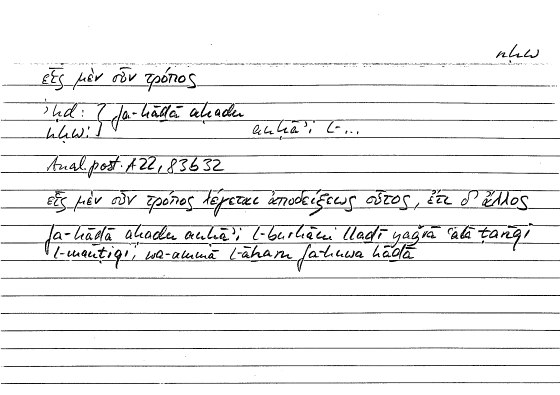 nḥw
εἷς μὲν οὖν τρόπος
ʾḥd: } fa-hāḏā aḥadu
nḥw: } anḥāʾi l-...
Anal. post. A 22, 83b32
εἷς μὲν οὖν τρόπος λέγεται ἀποδείξεως οὗτος, ἔτι δ' ἄλλος
fa-hāḏā aḥadu anḥāʾi l-burhāni llaḏī yaǧrā ʿalā ṭarīqi
l-manṭiqi, wa-ammā l-āḫaru fa-huwa hāḏā